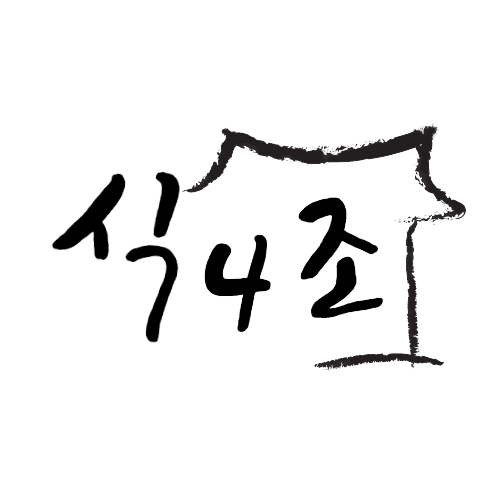 식4조